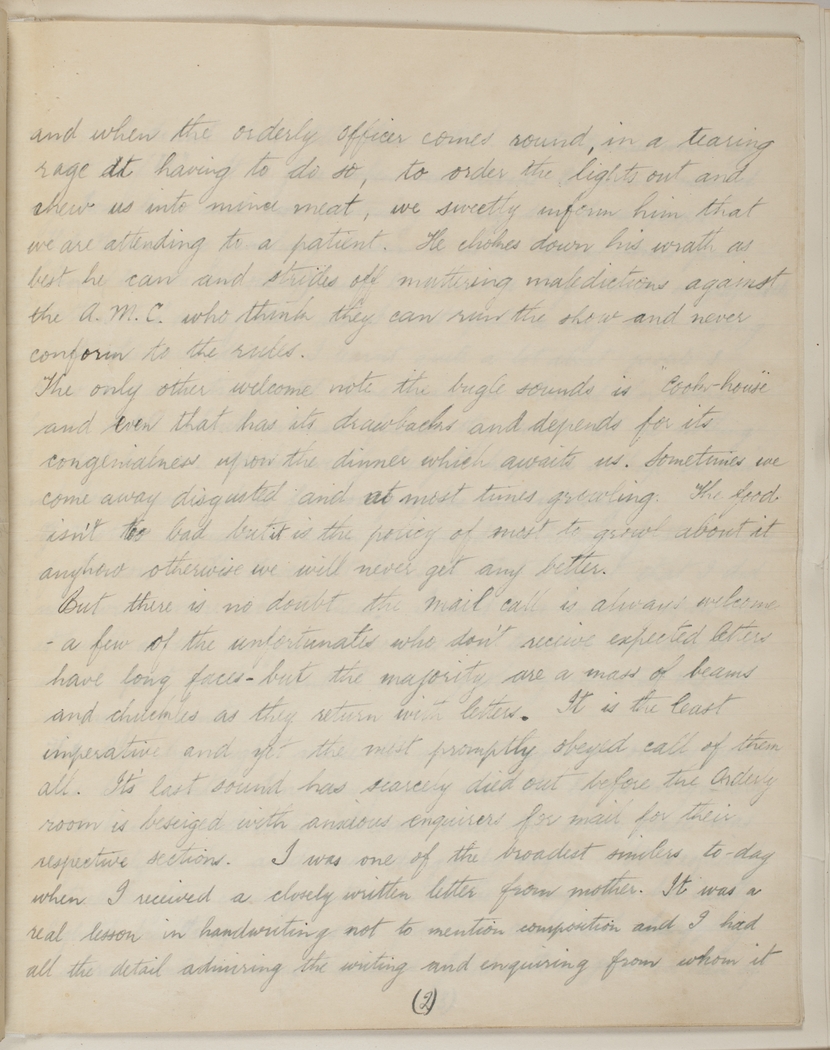 and when the orderly officer comes round, in a tearing
rage at having to do so, to order the lights out and
chew us into mince meat, we sweetly inform him that
we are attending to a patient. He chokes down his wrath as
best he can and strides off muttering maledictions against
the A.M.C. who think they can run the show and never
conform to the rules.
The only other welcome note the bugle sounds is "Cook-house"
and even that has its drawbacks and depends for its
congenialness upon the dinner which awaits us. Sometimes we
come away disgusted and at most times growling. The food
isn't too bad but it is the policy of most to growl about it
anyhow otherwise we will never get any better.
But there is no doubt the mail call is always welcome
- a few of the unfortunates who don't receive expected letters
have long faces - but the majority are a mass of beams
and chuckles as they return with letters. It is the least
imperative and yet the most promptly obeyed call of them
all. It's last sound has scarcely died out before the Orderly
room is beseiged with anxious enquirers for mail for their
respective sections. I was one of the broadest smilers to-day
when I received a closely written letter from mother. It was a
real lesson in handwriting not to mention composition and I had
all the detail admiring the writing and enquiring from whom it
(2)